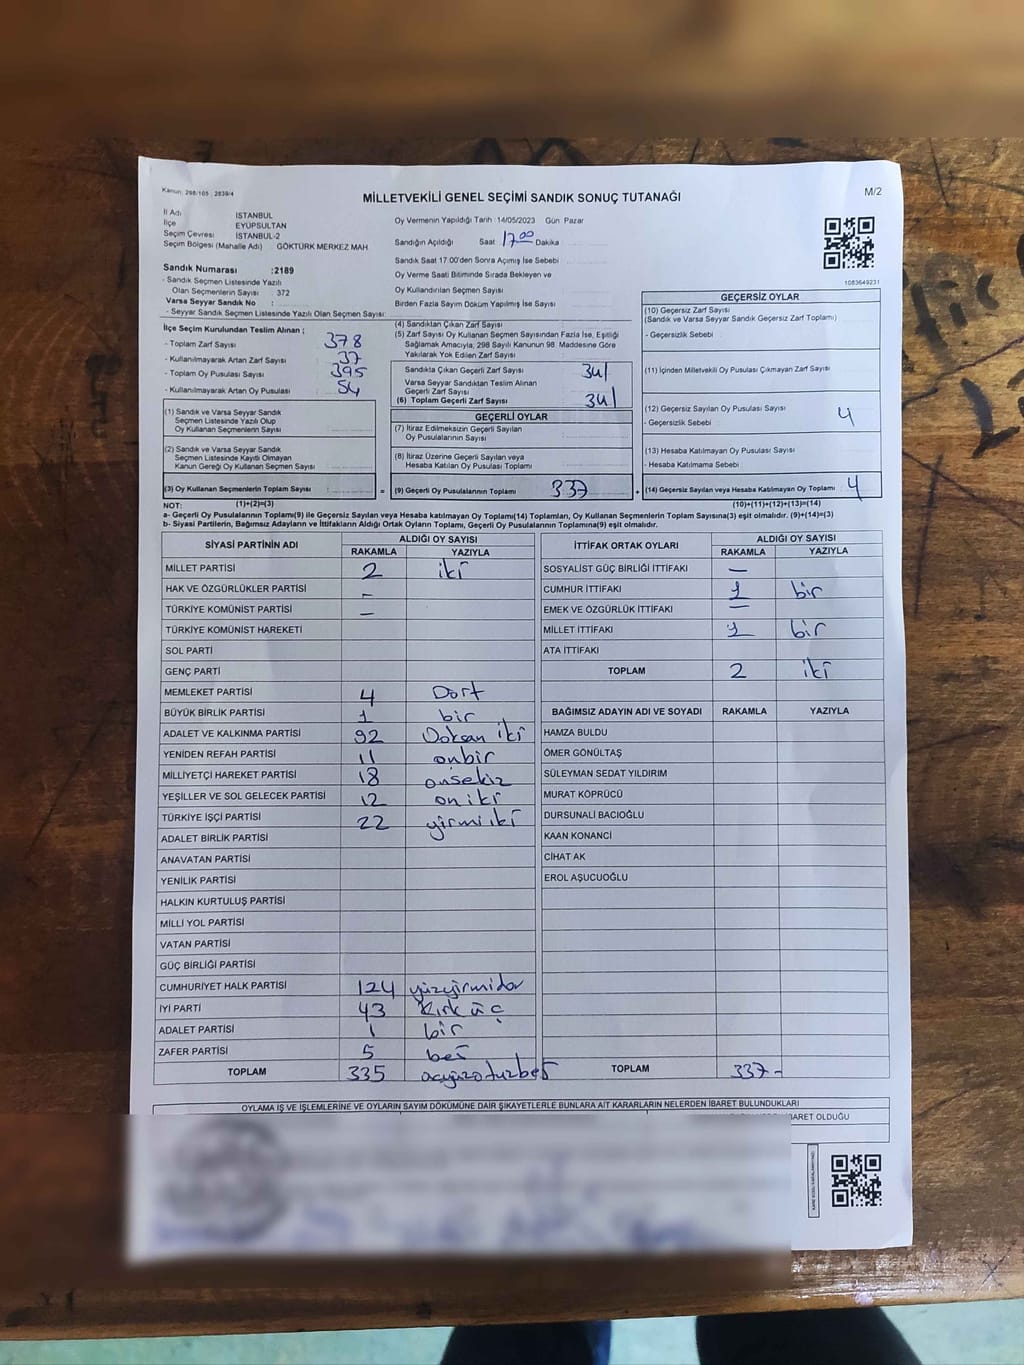 Kanun: 298/105 , 2839/4
MİLLETVEKİLİ GENEL SEÇİMİ SANDIK SONUÇ TUTANAĞI
M/2
İl Adı İSTANBUL
İlçe EYÜPSULTAN
Seçim Çevresi İSTANBUL-2
Seçim Bölgesi (Mahalle Adı) : GÖKTÜRK MERKEZ MAH
Oy Vermenin Yapıldığı Tarih :14/05/2023 Gün: Pazar
Sandığın Açıldığı Saat 17.00 Dakika
Sandık Saat 17.00'den Sonra Açımış İse Sebebi
Oy Verme Saati Bitiminde Sırada Bekleyen ve
Oy Kullandırılan Seçmen Sayısı
Birden Fazla Sayım Döküm Yapılmış İse Sayısı
1083649231
Sandık Numarası :2189
- Sandık Seçmen Listesinde Yazılı
Olan Seçmenlerin Sayısı : 372
Varsa Seyyar Sandık No
- Seyyar Sandık Seçmen Listesinde Yazılı Olan Seçmen Sayısı:
İlçe Seçim Kurulundan Teslim Alınan ;
- Toplam Zarf Sayısı : 378
- Kullanılmayarak Artan Zarf Sayısı : 37
- Toplam Oy Pusulası Sayısı : 395
- Kullanılmayarak Artan Oy Pusulası : 54
(1) Sandık ve Varsa Seyyar Sandık
Seçmen Listesinde Yazılı Olup
Oy Kullanan Seçmenlerin Sayısı :
(2) Sandık ve Varsa Seyyar Sandık
Seçmen Listesinde Kayıtlı Olmayan
Kanun Gereği Oy Kullanan Seçmen Sayısı :
(3) Oy Kullanan Seçmenlerin Toplam Sayısı : =
(4) Sandıktan Çıkan Zarf Sayısı :
(5) Zarf Sayısı Oy Kullanan Seçmen Sayısından Fazla İse, Eşitliği
Sağlamak Amacıyla; 298 Sayılı Kanunun 98. Maddesine Göre
Yakılarak Yok Edilen Zarf Sayısı :
Sandıkta Çıkan Geçerli Zarf Sayısı : 341
Varsa Seyyar Sandıktan Teslim Alınan
Geçerli Zarf Sayısı
(6) Toplam Geçerli Zarf Sayısı : 341
GEÇERLİ OYLAR
(7) İtiraz Edilmeksizin Geçerli Sayılan
Oy Pusulalarının Sayısı
(8) İtiraz Üzerine Geçerli Sayılan veya
Hesaba Katılan Oy Pusulası Toplamı
(9) Geçerli Oy Pusulalarının Toplamı 337 +
GEÇERSİZ OYLAR
(10) Geçersiz Zarf Sayısı
(Sandık ve Varsa Seyyar Sandık Geçersiz Zarf Toplamı)
- Geçersizlik Sebebi :
(11) İçinden Milletvekili Oy Pusulası Çıkmayan Zarf Sayısı
(12) Geçersiz Sayılan Oy Pusulası Sayısı 4
- Geçersizlik Sebebi :
(13) Hesaba Katılmayan Oy Pusulası Sayısı
- Hesaba Katılmama Sebebi :
(14) Geçersiz Sayılan veya Hesaba Katılmayan Oy Toplamı 4
NOT: (1)+(2)=(3) (10)+(11)+(12)+(13)=(14)
a- Geçerli Oy Pusulalarının Toplamı(9) ile Geçersiz Sayılan veya Hesaba katılmayan Oy Toplamı(14) Toplamları, Oy Kullanan Seçmenlerin Toplam Sayısına(3) eşit olmalıdır. (9)+(14)=(3)
b- Siyasi Partilerin, Bağımsız Adayların ve İttifakların Aldığı Ortak Oyların Toplamı, Geçerli Oy Pusulalarının Toplamına(9) eşit olmalıdır.
SİYASİ PARTİNİN ADI ALDIĞI OY SAYISI
RAKAMLA YAZIYLA
MİLLET PARTİSİ 2 iki
HAK VE ÖZGÜRLÜKLER PARTİSİ -
TÜRKİYE KOMÜNİST PARTİSİ -
TÜRKİYE KOMÜNİST HAREKETİ
SOL PARTİ
GENÇ PARTİ
MEMLEKET PARTİSİ 4 Dört
BÜYÜK BİRLİK PARTİSİ 1 bir
ADALET VE KALKINMA PARTİSİ 92 Doksan iki
YENİDEN REFAH PARTİSİ 11 onbir
MİLLİYETÇİ HAREKET PARTİSİ 18 onsekiz
YEŞİLLER VE SOL GELECEK PARTİSİ 12 on iki
TÜRKİYE İŞÇİ PARTİSİ 22 yirmi iki
ADALET BİRLİK PARTİSİ
ANAVATAN PARTİSİ
YENİLİK PARTİSİ
HALKIN KURTULUŞ PARTİSİ
MİLLİ YOL PARTİSİ
VATAN PARTİSİ
GÜÇ BİRLİĞİ PARTİSİ
CUMHURİYET HALK PARTİSİ 124
İYİ PARTİ 43 Kırk üç
ADALET PARTİSİ 1 bir
ZAFER PARTİSİ 5 beş
TOPLAM 335
İTTİFAK ORTAK OYLARI ALDIĞI OY SAYISI
RAKAMLA YAZIYLA
SOSYALİST GÜÇ BİRLİĞİ İTTİFAKI —
CUMHUR İTTİFAKI 1 bir
EMEK VE ÖZGÜRLÜK İTTİFAKI —
MİLLET İTTİFAKI 1 bir
ATA İTTİFAKI
TOPLAM 2 iki
BAĞIMSIZ ADAYIN ADI VE SOYADI RAKAMLA YAZIYLA
HAMZA BULDU
ÖMER GÖNÜLTAŞ
SÜLEYMAN SEDAT YILDIRIM
MURAT KÖPRÜCÜ
DURSUNALİ BACIOĞLU
KAAN KONANCİ
CİHAT AK
EROL AŞUCUOĞLU
TOPLAM 337-
OYLAMA İŞ VE İŞLEMLERİNE VE OYLARIN SAYIM DÖKÜMÜNE DAİR ŞİKAYETLERLE BUNLARA AİT KARARLARIN NELERDEN İBARET BULUNDUKLARI
İBARET OLDUĞU